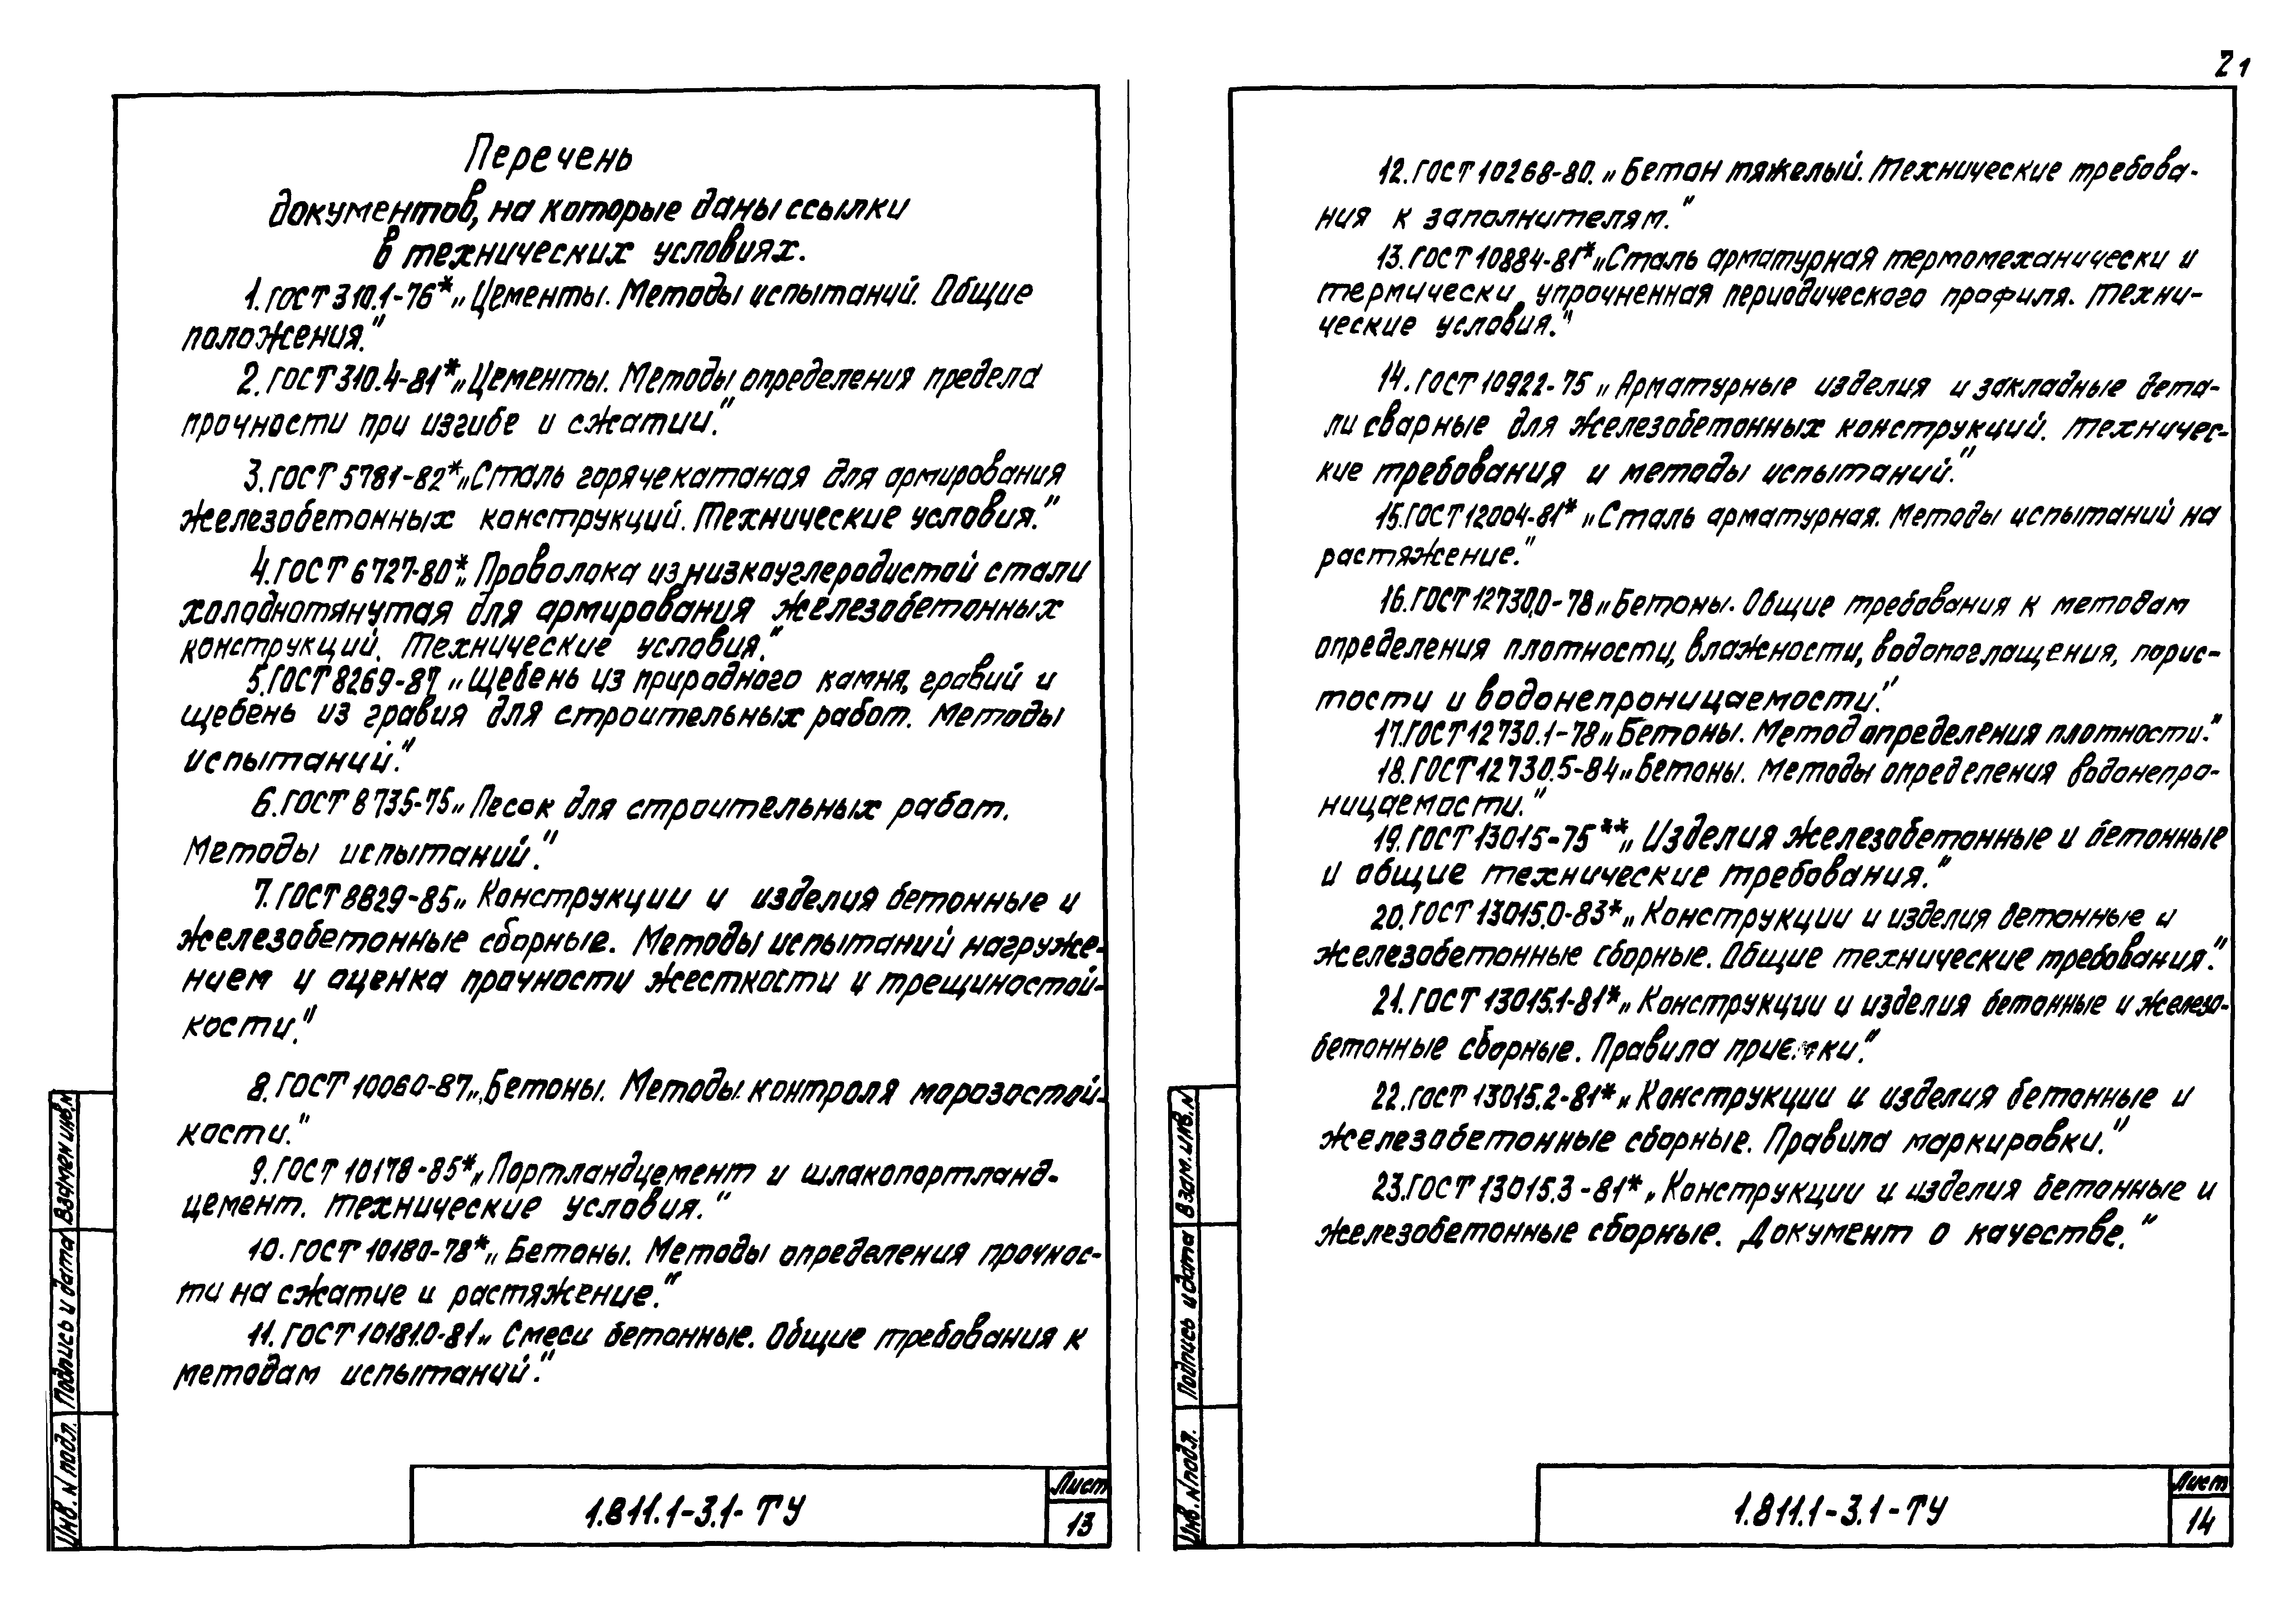 21
Перечень
документов, на которые даны ссылки
в технических условиях.
1. ГОСТ 310.1-76* „Цементы. Методы испытаний. Общие
положения."
2. ГОСТ 310.4-81* „Цементы. Методы определения предела
прочности при изгибе и сжатии."
3. ГОСТ 5781-82* „Сталь горячекатаная для армирования
железобетонных конструкций. Технические условия."
4. ГОСТ 6727-80* „Проволока из низкоуглеродистой стали
холоднотянутая для армирования железобетонных
конструкций. Технические условия."
5. ГОСТ 8269-87 „Щебень из природного камня, гравий и
щебень из гравия для строительных работ. Методы
испытаний."
6. ГОСТ 8735-75 „Песок для строительных работ.
Методы испытаний."
7. ГОСТ 8829-85 „Конструкции и изделия бетонные и
железобетонные сборные. Методы испытаний нагруже-
нием и оценка прочности жесткости и трещиностой-
кости."
8. ГОСТ 10060-87 „Бетоны. Методы контроля морозостой-
кости."
9. ГОСТ 10178-85* „Портландцемент и шлакопортланд-
цемент. Технические условия."
10. ГОСТ 10180-78* „Бетоны. Методы определения прочнос-
ти на сжатие и растяжение."
11. ГОСТ 10181.0-81 „Смеси бетонные. Общие требования к
методам испытаний."
Инв. N подл. Подпись и дата Взамен инв.N
1.811.1-3.1-ТУ
Лист
13
12. ГОСТ 10268-80. „Бетон тяжелый. Технические требова-
ния к заполнителям."
13. ГОСТ 10884-81* „Сталь арматурная термомеханически и
термически упрочненная периодического профиля. Техни-
ческие условия."
14. ГОСТ 10922-75 „Арматурные изделия и закладные дета-
ли сварные для железобетонных конструкций. Техничес-
кие требования и методы испытаний."
15. ГОСТ 12004-81* „Сталь арматурная. Методы испытаний на
растяжение."
16. ГОСТ 12730.0-78 „Бетоны. Общие требования к методам
определения плотности, влажности, водопоглощения, порис-
тости и водонепроницаемости."
17. ГОСТ 12730.1-78 „Бетоны. Метод определения плотности."
18. ГОСТ 12730.5-84 „Бетоны. Методы определения водонепро-
ницаемости."
19. ГОСТ 13015-75** „Изделия железобетонные и бетонные
и общие технические требования."
20. ГОСТ 13015.0-83* „Конструкции и изделия бетонные и
железобетонные сборные. Общие технические требования."
21. ГОСТ 13015.1-81* „Конструкции и изделия бетонные и железо-
бетонные сборные. Правила приемки."
22. ГОСТ 13015.2-81* „Конструкции и изделия бетонные и
железобетонные сборные. Правила маркировки."
23. ГОСТ 13015.3-81* „Конструкции и изделия бетонные и
железобетонные сборные. Документ о качестве."
Инв. N подл. Подпись и дата Взам.инв.N
1.811.1-3.1-ТУ
Лист
14